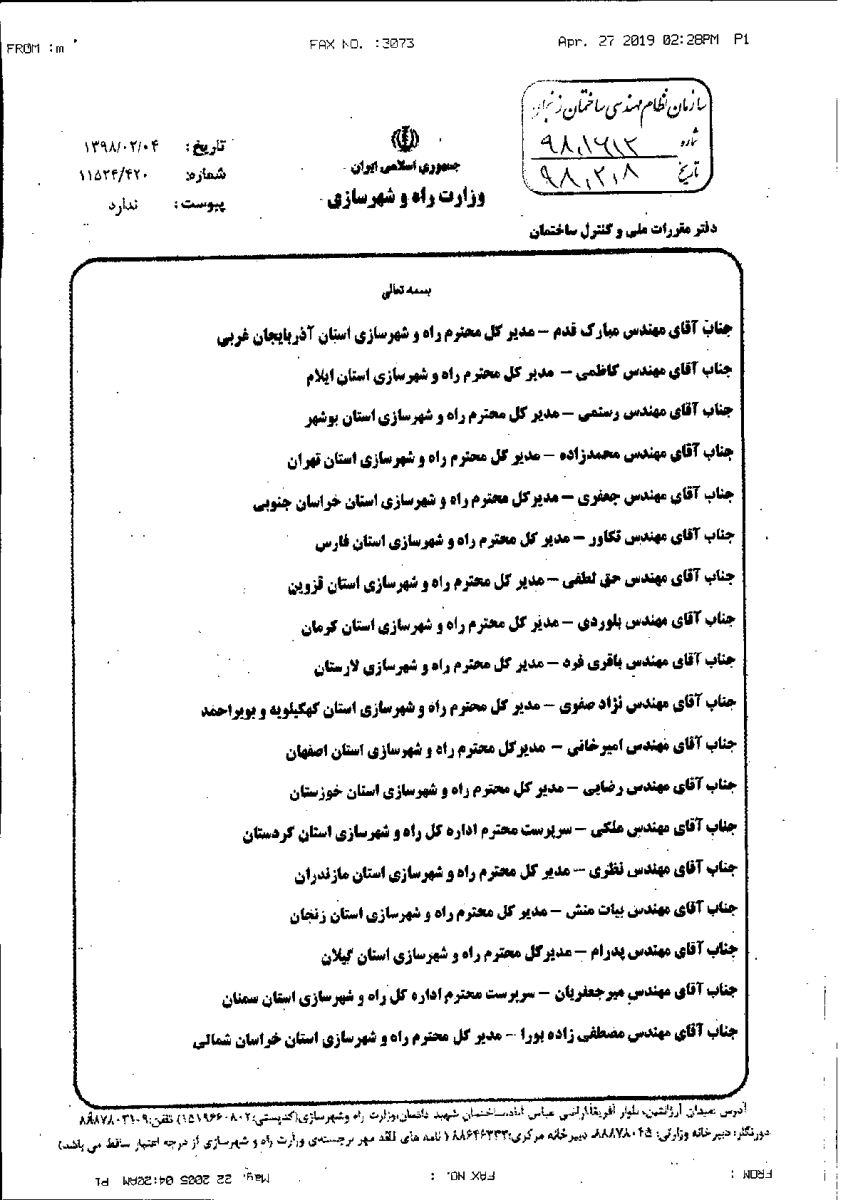 FROM : m
FAX NO. :3073
Apr. 27 2019 02:28PM P1
سازمان نظام مهندسی ساختمان زنجان
شماره ۹۸,۱۶۱۲
تاریخ ۹۸,۲,۸
جمهوری اسلامی ایران
وزارت راه و شهرسازی
تاریخ: ۱۳۹۸/۰۲/۰۴
شماره: ۱۱۵۲۴/۴۲۰
پیوست: ندارد
دفتر مقررات ملی و کنترل ساختمان
بسمه تعالی
جناب آقای مهندس مبارک قدم – مدیر کل محترم راه و شهرسازی استان آذربایجان غربی
جناب آقای مهندس کاظمی – مدیر کل محترم راه و شهرسازی استان ایلام
جناب آقای مهندس رستمی – مدیر کل محترم راه و شهرسازی استان بوشهر
جناب آقای مهندس محمدزاده – مدیر کل محترم راه و شهرسازی استان تهران
جناب آقای مهندس جعفری – مدیرکل محترم راه و شهرسازی استان خراسان جنوبی
جناب آقای مهندس تکاور – مدیر کل محترم راه و شهرسازی استان فارس
جناب آقای مهندس حق لطفی – مدیر کل محترم راه و شهرسازی استان قزوین
جناب آقای مهندس بلوردی – مدیر کل محترم راه و شهرسازی استان کرمان
جناب آقای مهندس باقری فرد – مدیر کل محترم راه و شهرسازی لارستان
جناب آقای مهندس نژاد صفوی – مدیر کل محترم راه و شهرسازی استان کهگیلویه و بویراحمد
جناب آقای مهندس امیرخانی – مدیرکل محترم راه و شهرسازی استان اصفهان
جناب آقای مهندس رضایی – مدیر کل محترم راه و شهرسازی استان خوزستان
جناب آقای مهندس ملکی – سرپرست محترم اداره کل راه و شهرسازی استان کردستان
جناب آقای مهندس نظری – مدیر کل محترم راه و شهرسازی استان مازندران
جناب آقای مهندس بیات منش – مدیر کل محترم راه و شهرسازی استان زنجان
جناب آقای مهندس پدرام – مدیرکل محترم راه و شهرسازی استان گیلان
جناب آقای مهندس میرجعفریان – سرپرست محترم اداره کل راه و شهرسازی استان سمنان
جناب آقای مهندس مصطفی زاده بورا – مدیر کل محترم راه و شهرسازی استان خراسان شمالی
آدرس :میدان آرژانتین، بلوار آفریقا،اراضی عباس آباد،ساختمان شهید دادمان،وزارت راه وشهرسازی(کدپستی:۱۵۱۹۶۶۰۸۰۲) تلفن:۹-۸۸۸۷۸۰۳۱
دورنگار: دبیرخانه وزارتی: ۸۸۸۷۸۰۴۵ دبیرخانه مرکزی:۸۸۶۴۶۳۳۳ (نامه های فاقد مهر برجسته‌ی وزارت راه و شهرسازی از درجه اعتبار ساقط می باشد)
FROM :
FAX NO. :
May. 22 2005 04:20AM P1